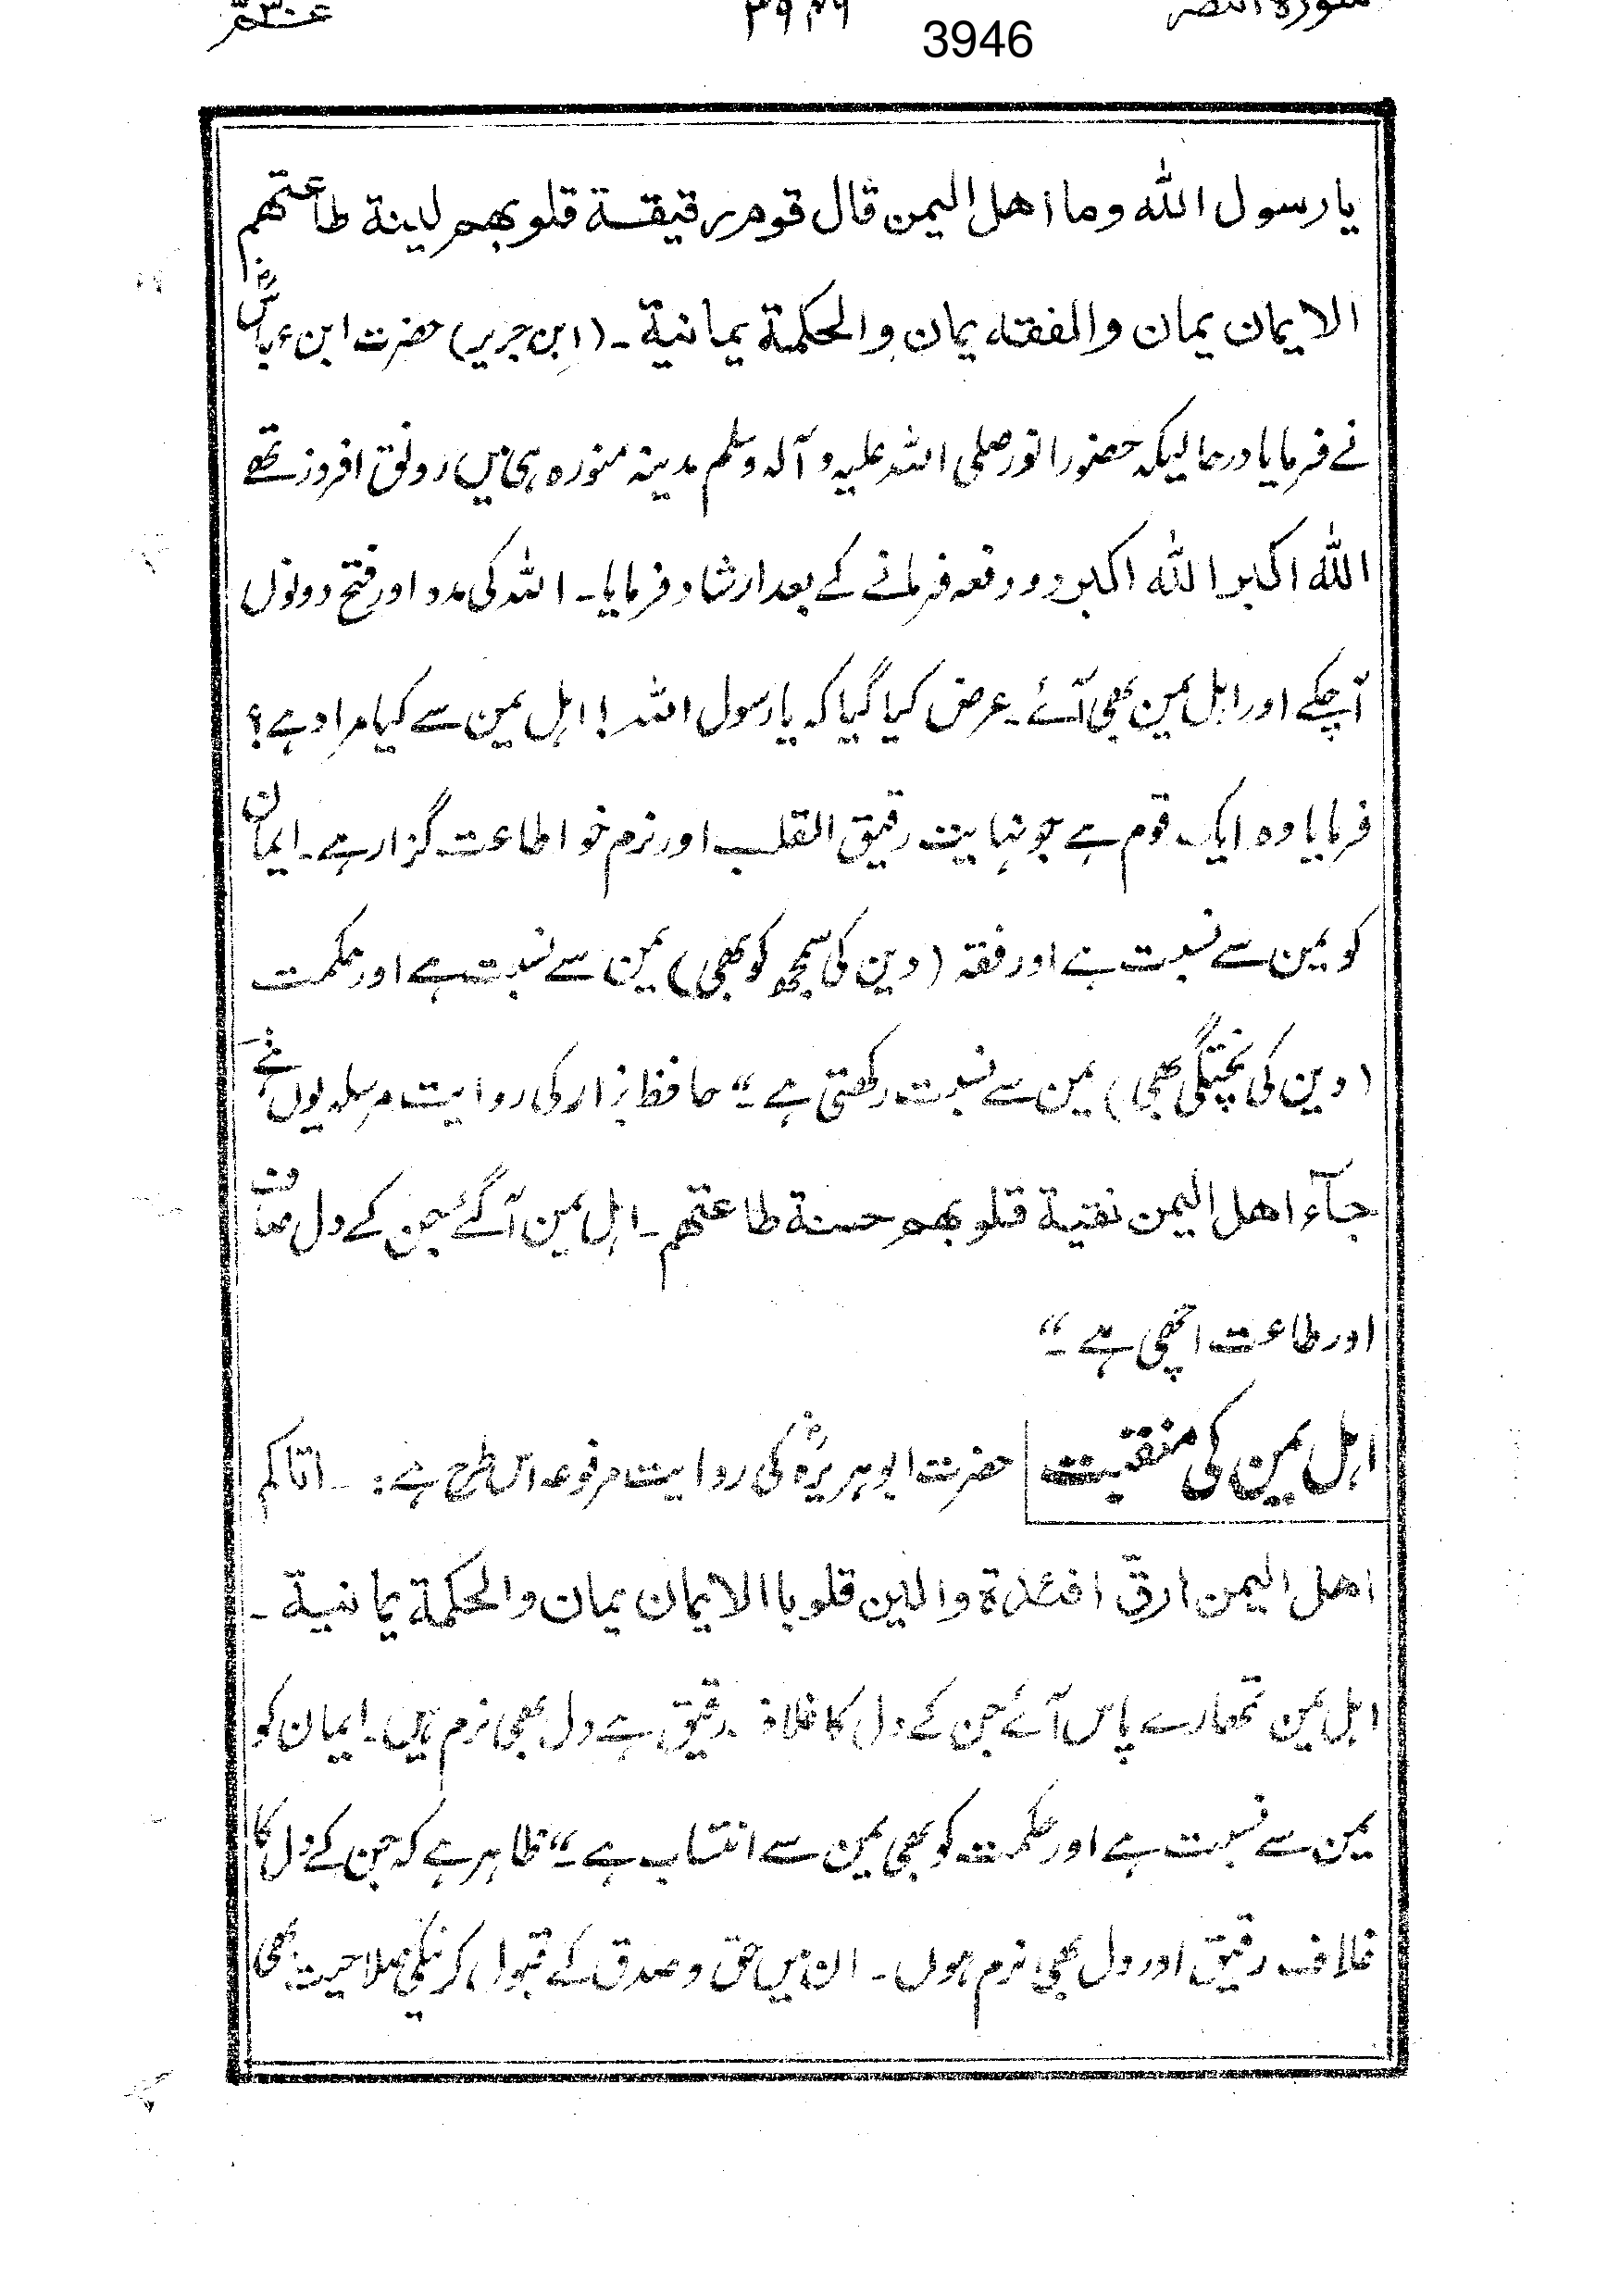 سورة النصر ٣٩٤٦ عمّ ۳۰
3946
يا رسول الله وما اهل اليمن قال قوم رقيقة قلوبهم لينة طاعتهم
الايمان يمان والفقه يمان والحكمة يمانية ۔ (ابن جریر) حضرت ابن عباسؓ
نے فرمایا درحالیکہ حضور انور صلی اللہ علیہ و آلہ وسلم مدینہ منورہ ہی میں رونق افروز تھے
الله اكبر الله اكبر دو دفعہ فرمانے کے بعد ارشاد فرمایا ۔ اللہ کی مدد اور فتح دونوں
آچکے اور اہل یمن بھی آئے ۔ عرض کیا گیا کہ یا رسول اللہ ! اہل یمن سے کیا مراد ہے ؟
فرمایا وہ ایک قوم ہے جو نہایت رقیق القلب اور نرم خو اطاعت گزار ہے ۔ ایمان
کو یمن سے نسبت ہے اور فقہ (دین کی سمجھ کو بھی) یمن سے نسبت ہے اور حکمت
(دین کی پختگی بھی) یمن سے نسبت رکھتی ہے ۔“ حافظ بزار کی روایت مرسلہ یوں ہے
جآء اهل اليمن نقية قلوبهم حسنة طاعتهم ۔ اہل یمن آگئے جن کے دل صاف
اور طاعت اچھی ہے ۔“
اہل یمن کی منقبت حضرت ابوہریرہؓ کی روایت مرفوعہ اس طرح ہے : ۔ اتاكم
اهل اليمن ارق افئدة والين قلوبا الايمان يمان والحكمة يمانية ۔
اہل یمن تمھارے پاس آئے جن کے دل کا غلاف رقیق ہے دل بھی نرم ہیں ۔ ایمان کو
یمن سے نسبت ہے اور حکمت کو بھی یمن سے انتساب ہے ۔“ ظاہر ہے کہ جن کے دل کا
غلاف رقیق اور دل بھی نرم ہوں ۔ ان میں حق و صدق کے قبول کرنیکی صلاحیت بھی